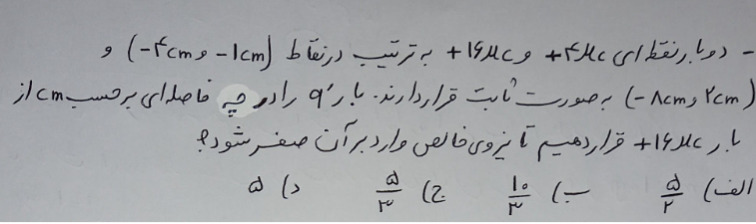 - دو بار نقطه‌ای +۴μc و +۱۶μc به ترتیب در نقاط (-۴cm و -۱cm) و
(-۸cm و ۲cm) به صورت ثابت قرار دارند. بار q′ را در چه فاصله‌ای برحسب cm از
بار +۱۶μc قرار دهیم تا نیروی خالص وارد بر آن صفر شود؟
الف) ۵/۲ ب) ۱۰/۳ ج) ۵/۳ د) ۵